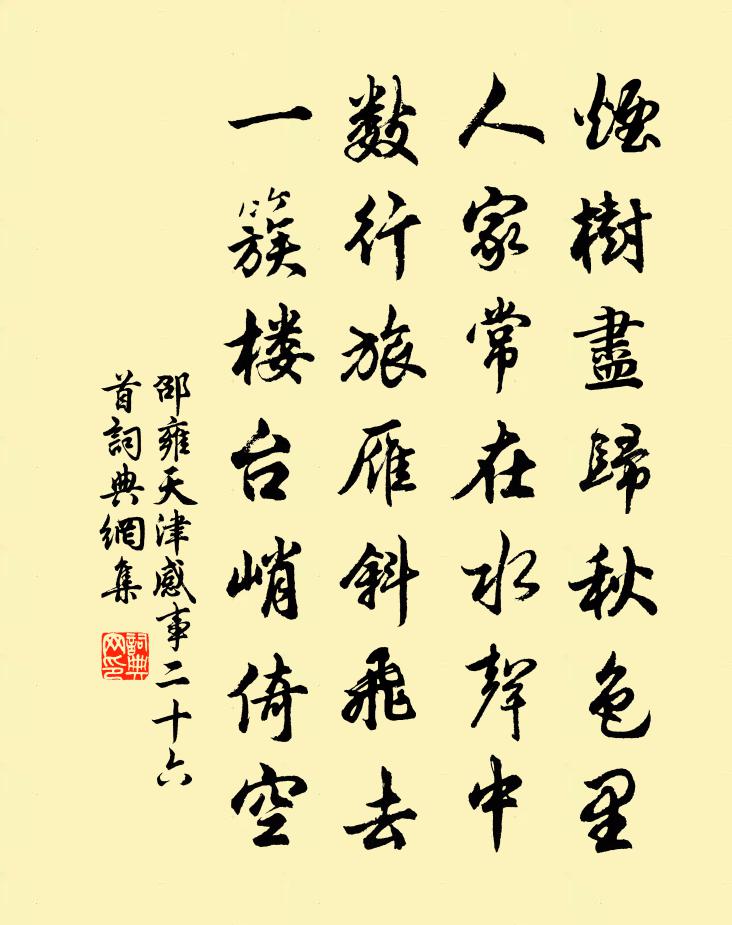 煙樹盡歸秋色里
人家常在水聲中
數行旅雁斜飛去
一簇楼台峭倚空
邵雍天津感事二十六
首詞典網集
詞典
网印